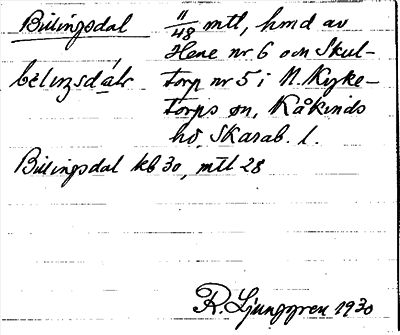 Billingsdal 11/48 mtl, hmd av
Hene nr 6 och Skul-
bèlıŋsdɑ́lr torp nr 5 i N. Kyrke-
torps sn, Kåkinds
hd, Skarab. l.
Billingsdal kb 30, mtl 28
R. Ljunggren 1930